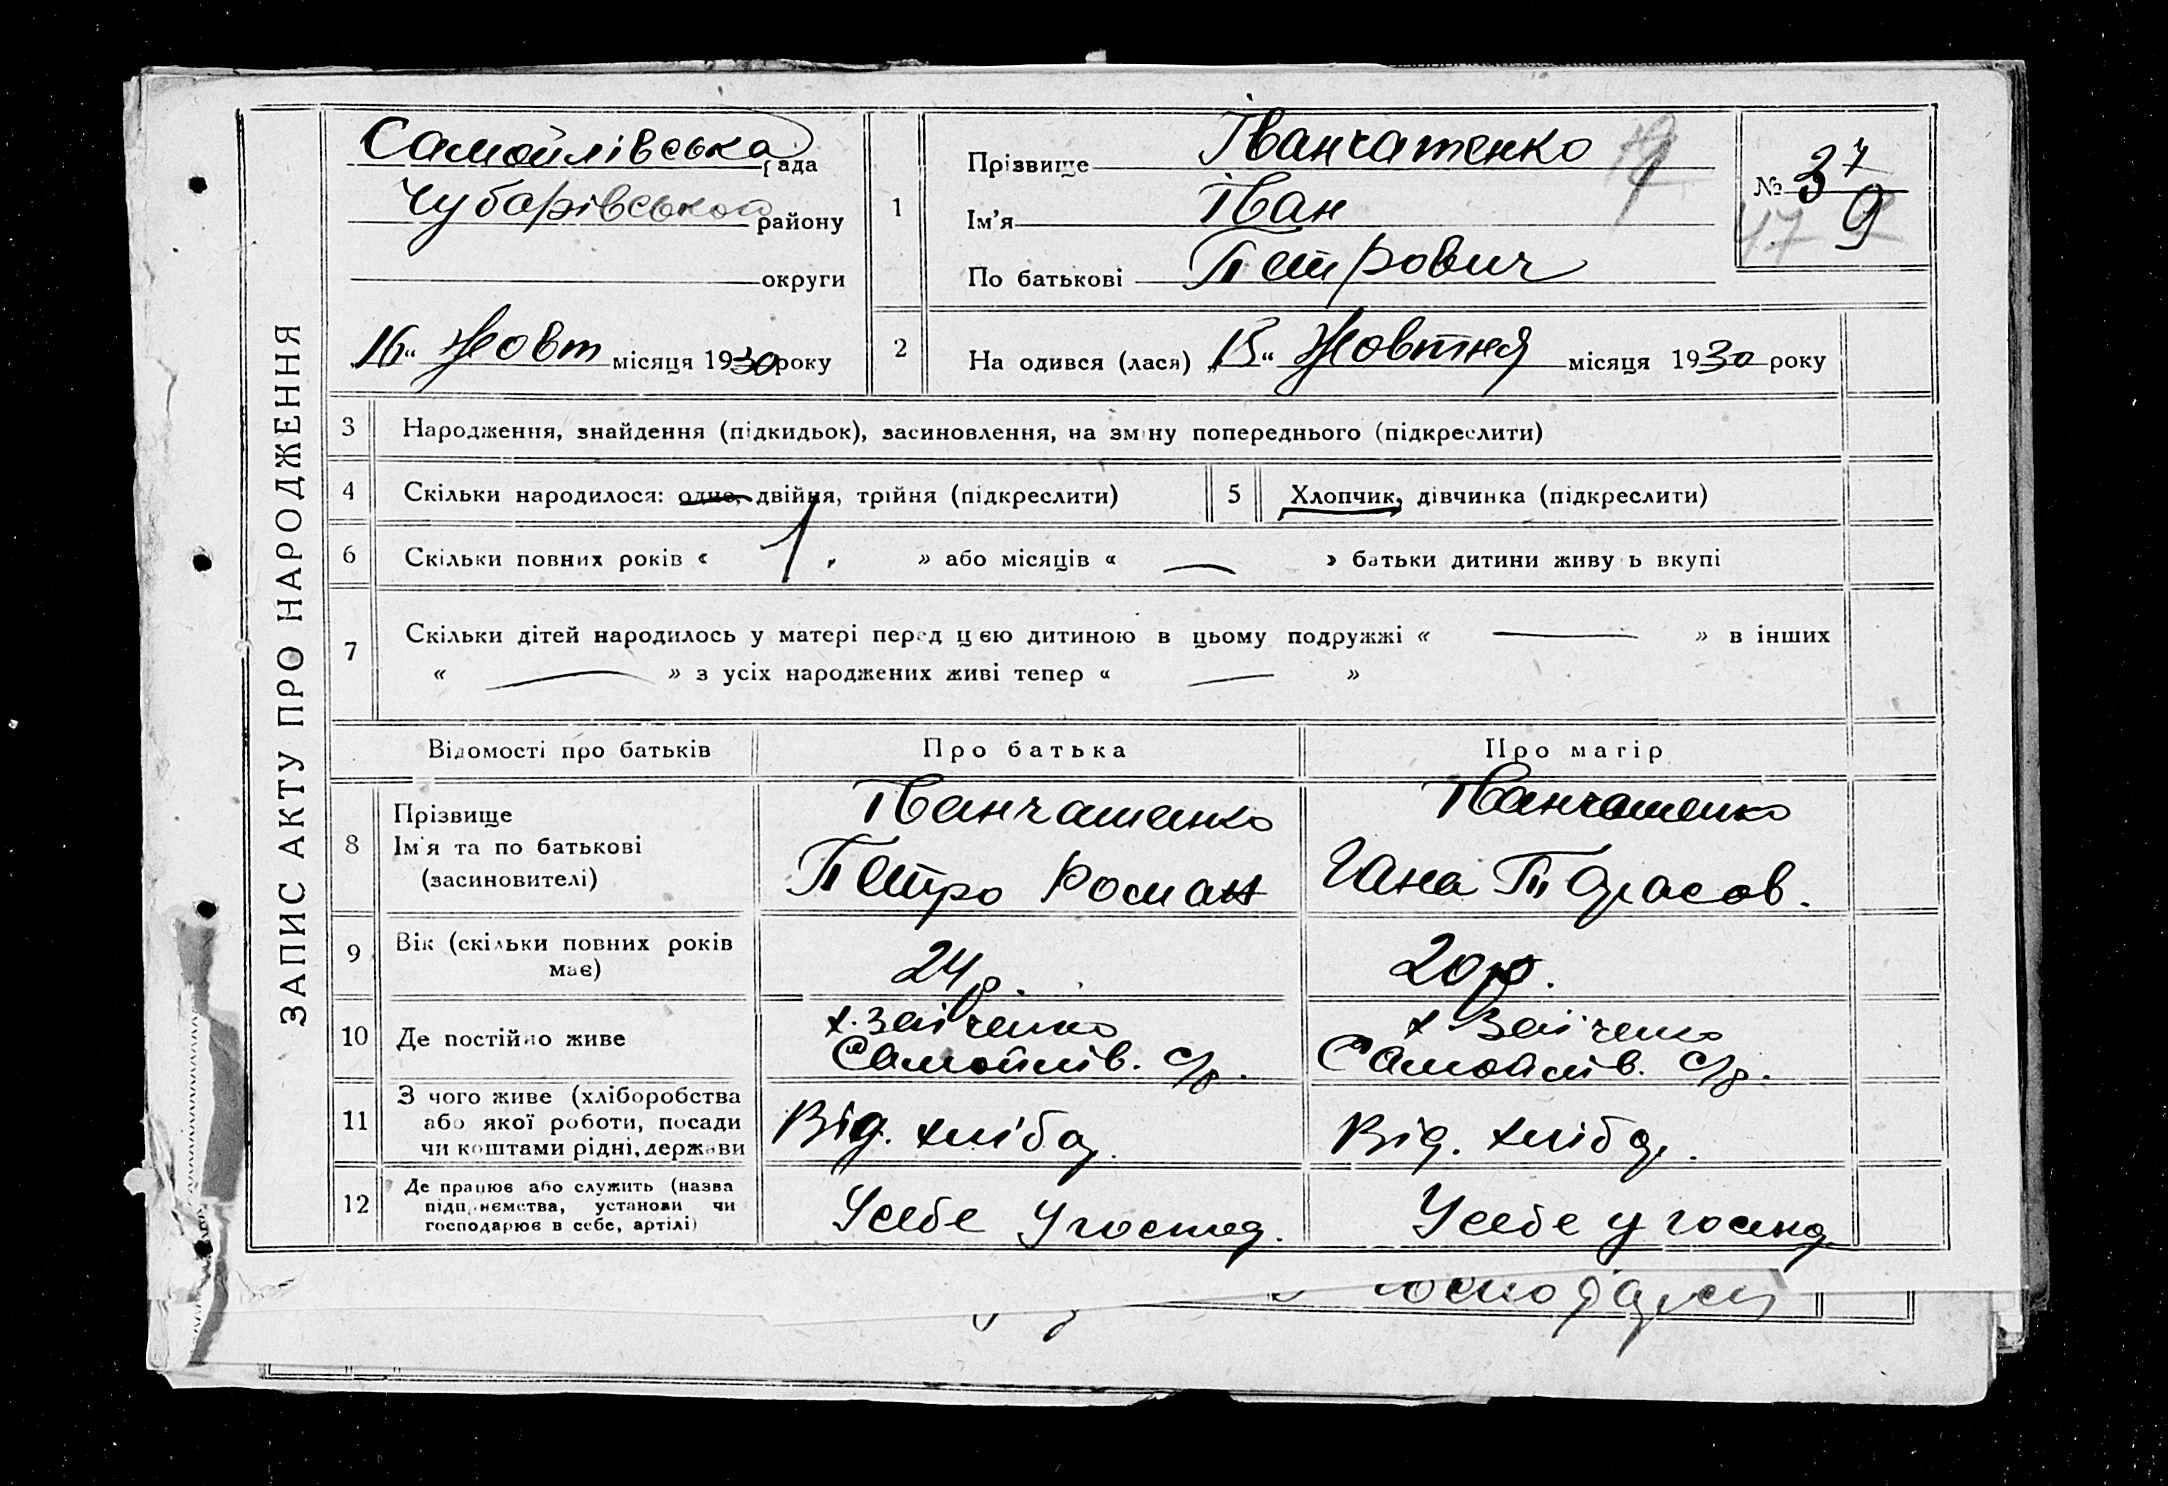 ЗАПИС АКТУ ПРО НАРОДЖЕННЯ
Самойлівська рада
Чубарівського району
округи
"16" Жовт місяця 1930 року
1
Прізвище Іванчатенко
Ім'я Іван
По батькові Петрович
№ 37
9
17
2
На одився (лася) "15" Жовтня місяця 1930 року
3 Народження, знайдення (підкидьок), засиновлення, на зміну попереднього (підкреслити)
4 Скільки народилося: одне, двійня, трійня (підкреслити)
5 Хлопчик, дівчинка (підкреслити)
6 Скільки повних років « 1 » або місяців « — » батьки дитини живу ь вкупі
7 Скільки дітей народилось у матері перед цією дитиною в цьому подружжі « — » в інших
« — » з усіх народжених живі тепер « — »
Відомості про батьків
Про батька
Про матір
8 Прізвище
Ім'я та по батькові
(засиновителі)
Іванчатенко
Петро Роман
Іванчатенко
Гана Тарасов.
9 Вік (скільки повних років
має)
24 р.
20 р.
10 Де постійно живе
х. Зайченко
Самойлів. с/р.
х Зайченко
Самойлів. с/р.
11 З чого живе (хліборобства
або якої роботи, посади
чи коштами рідні, держави
Від. хліба.
Від. хліба.
12 Де працює або служить (назва
підприємства, установи чи
господарює в себе, артілі)
Усебе у господ.
Усебе у господ